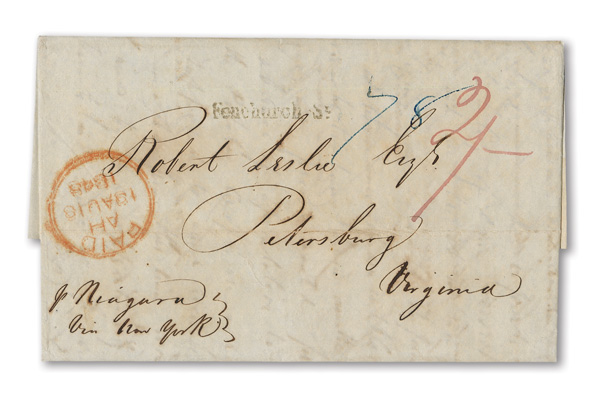 Fenchurch St
2/-
Robert Leslie Esqr.
Petersburg
Virginia
PAID
AH
18 AU 18
1848
p Niagara
Via New York